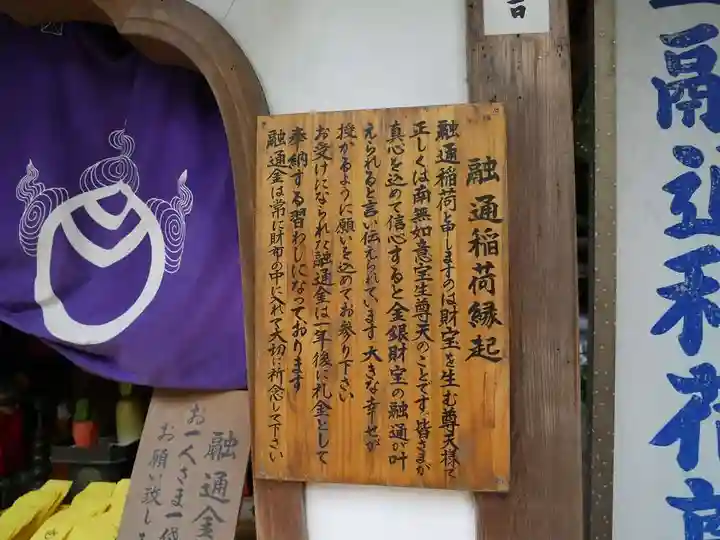 融通稲荷縁起
融通稲荷と申しますのは財宝を生む尊天様で
正しくは南無如意宝生尊天のことです皆さまが
真心を込めて信心すると金銀財宝の融通が叶
えられると言い伝えられています大きな幸せが
授かるように願いを込めてお参り下さい
お受けになられた融通金は一年後に礼金として
奉納する習わしになっております
融通金は常に財布の中に入れて大切に祈念して下さい
融通金
お一人さま一袋
お願い致し
融通稲荷